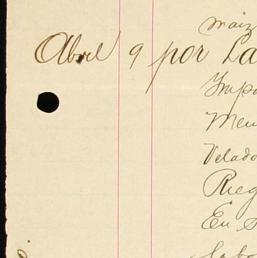 maiz
Abril 9 por La
Impo
Men
Velado
Rieg
En